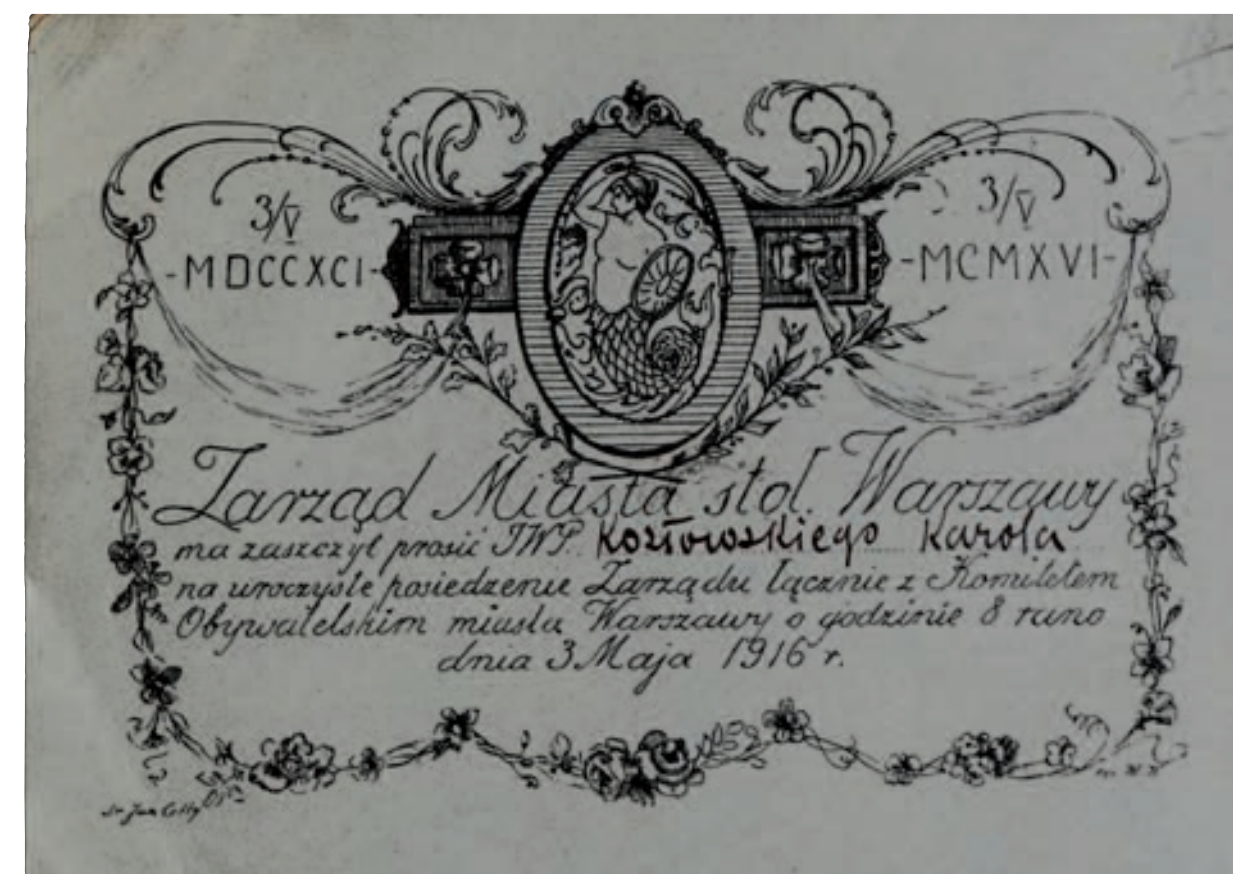 3/V
-MDCCXCI-
3/V
-MCMXVI-
Zarząd Miasta stoł. Warszawy
ma zaszczyt prosić JWP. Kozłowskiego Karola
na uroczyste posiedzenie Zarządu łącznie z Komitetem
Obywatelskim miasta Warszawy o godzinie 8 rano
dnia 3 Maja 1916 r.